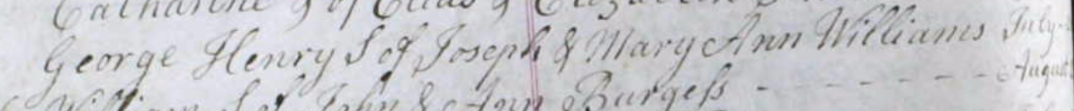 Catharine D of Elias & Elizabeth
George Henry S of Joseph & Mary Ann Williams July
William S of John & Ann Burgess - - - - - - August